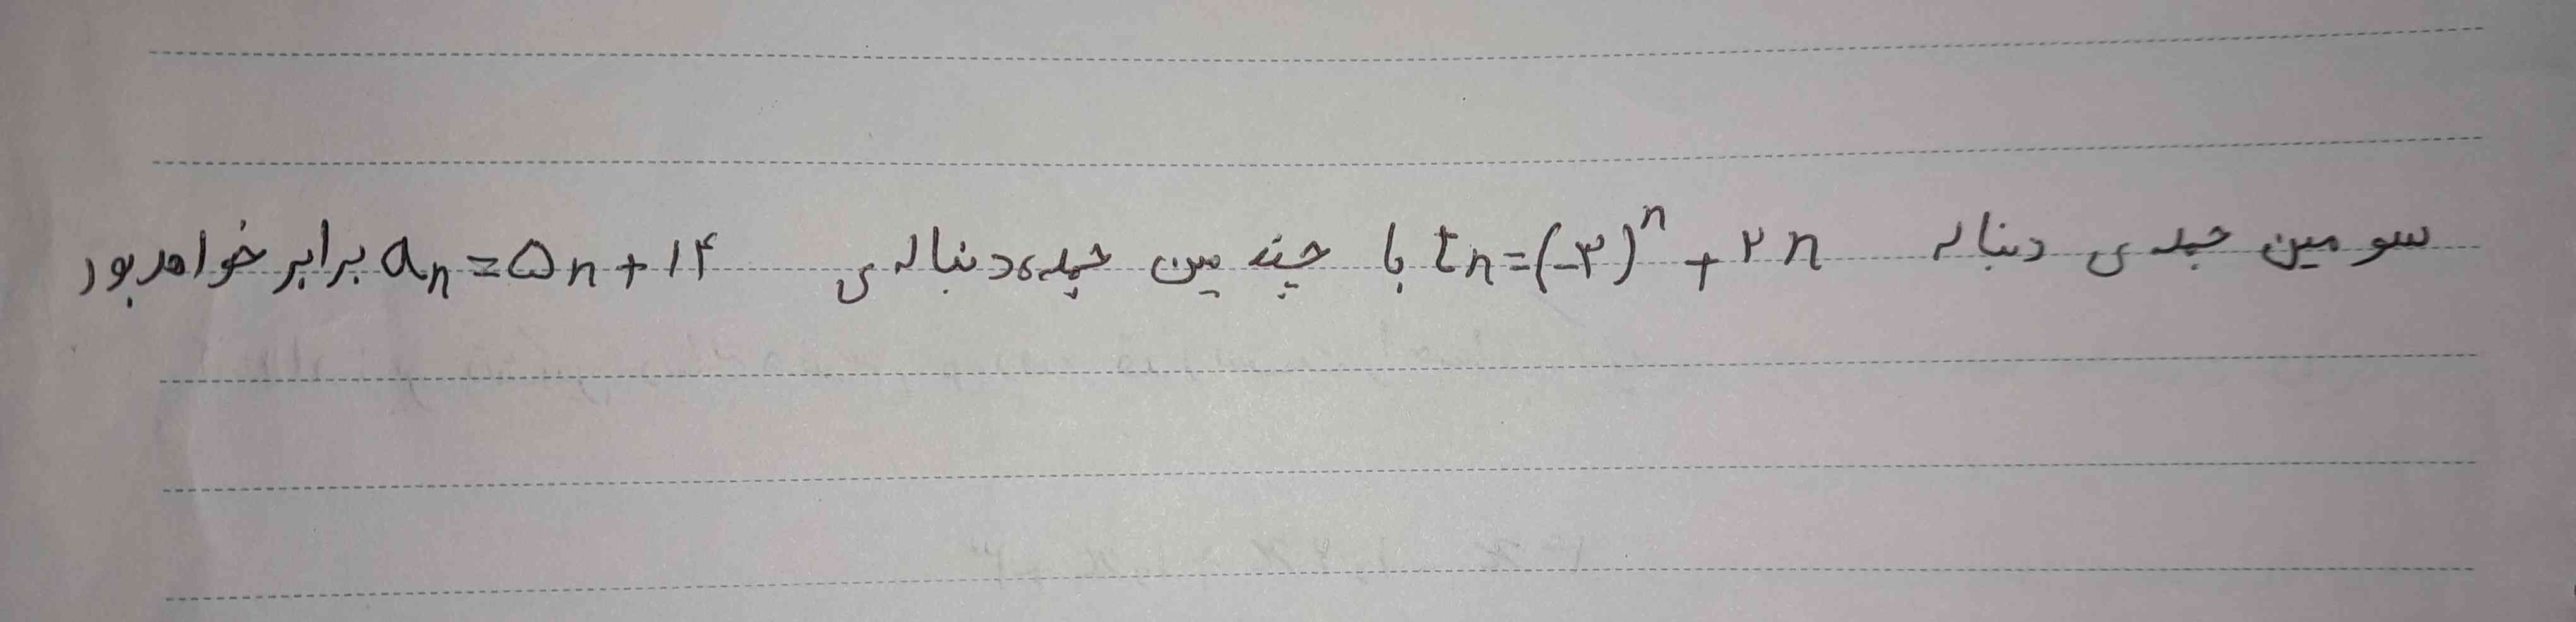 سومین جمله ی دنباله tn=(-۳)^n + ۲n با چند مین جمله دنباله ی an=۵n+۱۴ برابر خواهد بود